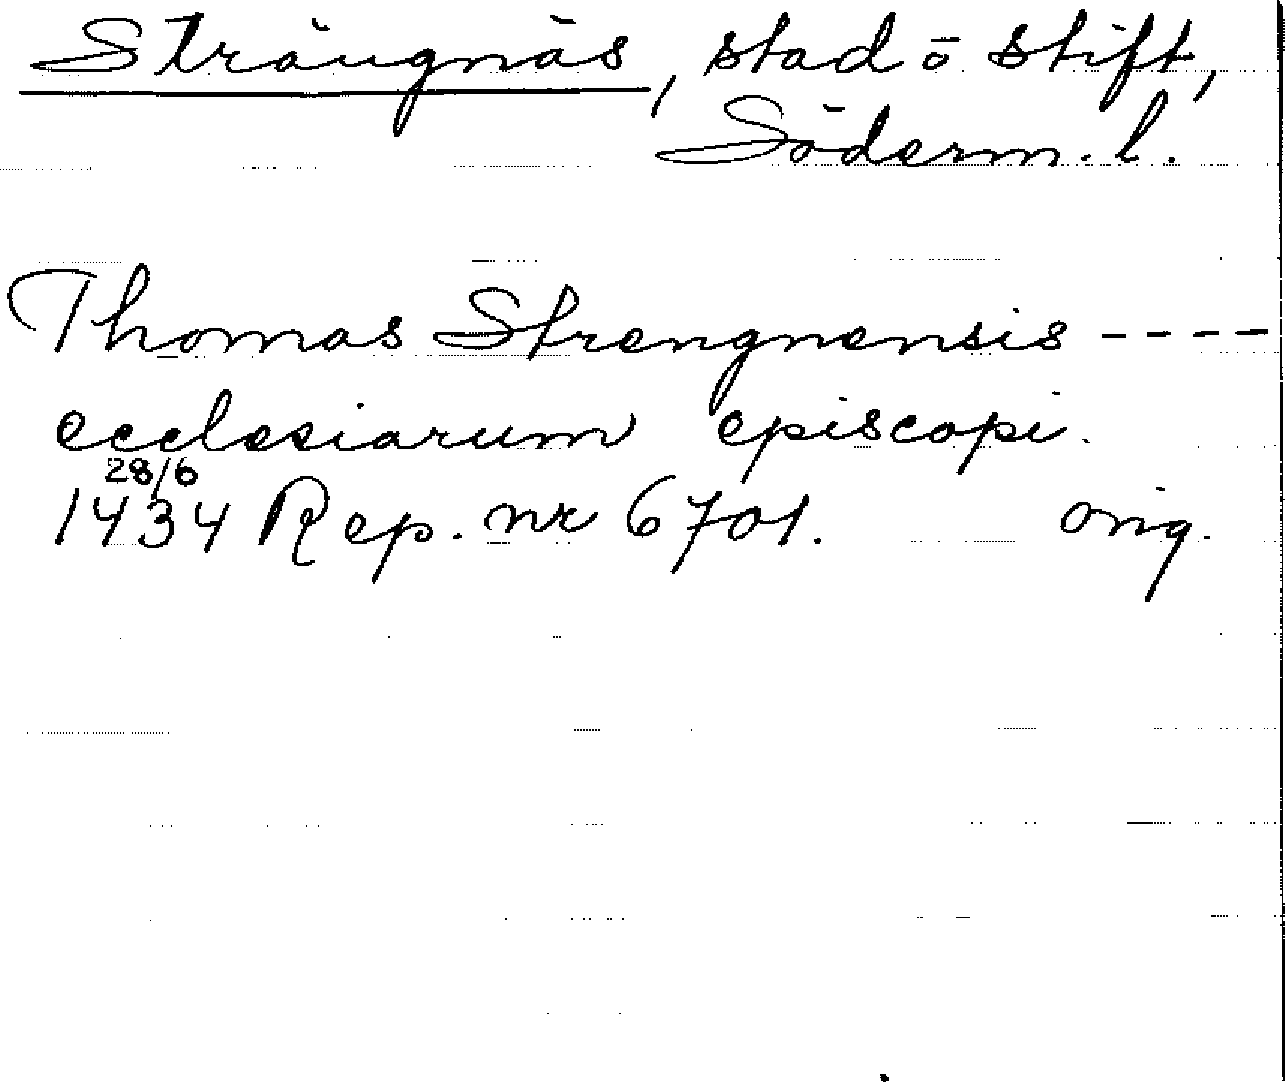 Strängnäs, stad ö stift,
Söderm. l.
Thomas Strengnensis ----
ecclesiarum episcopi.
28/6
1434 Rep. nr 6701. orig.